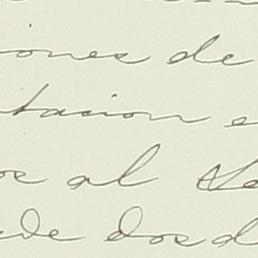 iones de
tacion e
os al
de dos d